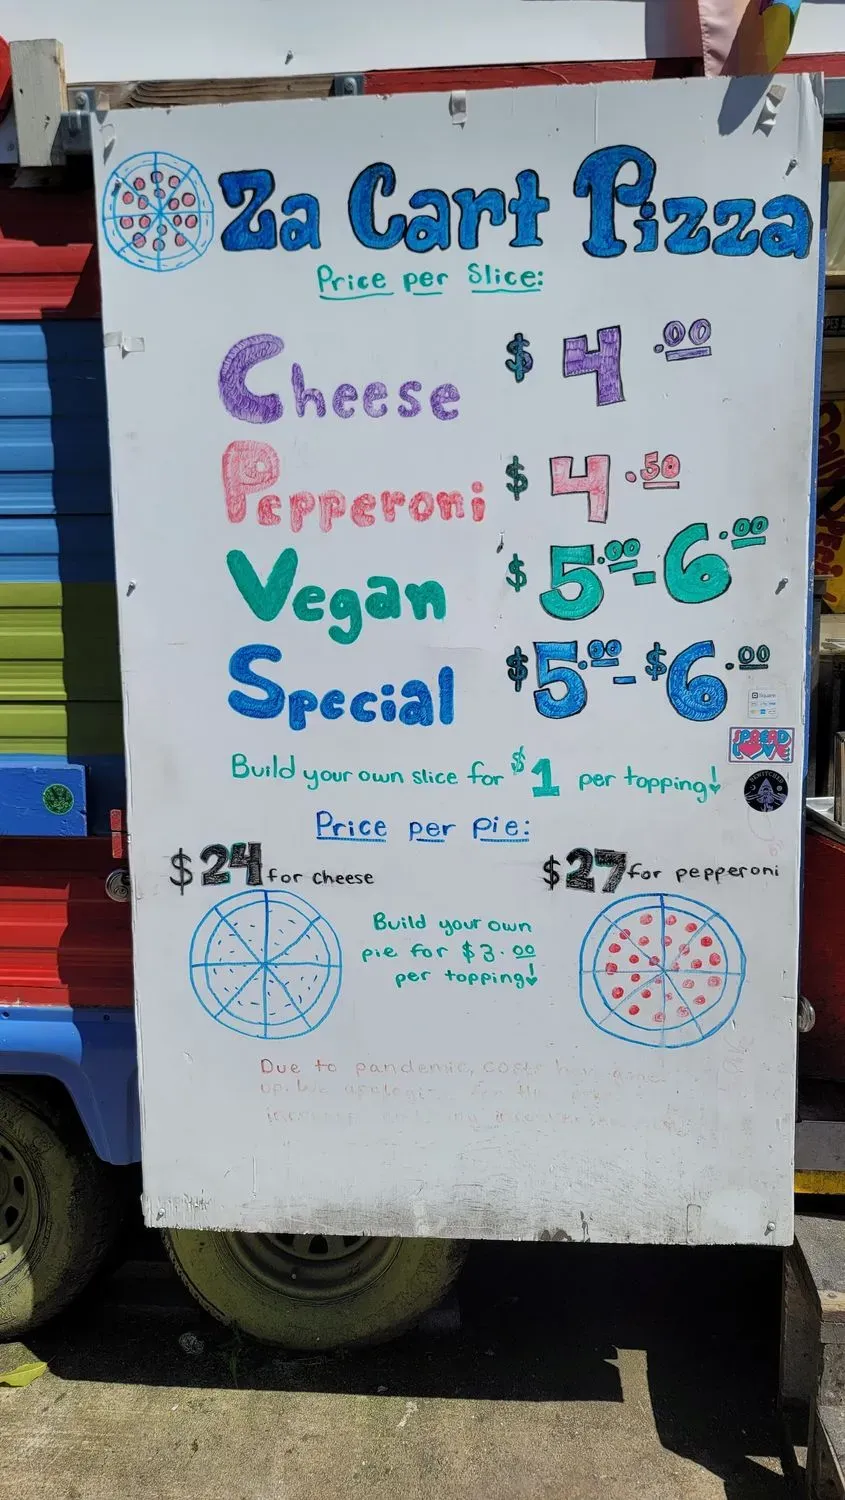 Za Cart Pizza
Price per Slice:
Cheese $ 4.00
Pepperoni $ 4.50
Vegan $ 5.00-6.00
Special $5.00-$6.00
Square
SPREAD
LOVE
BEWITCHED
Build your own slice for $1 per topping!
Price per pie:
$24 for cheese
$27 for pepperoni
Build your own
pie for $3.00
per topping!
Due to pandemic, costs
up. We